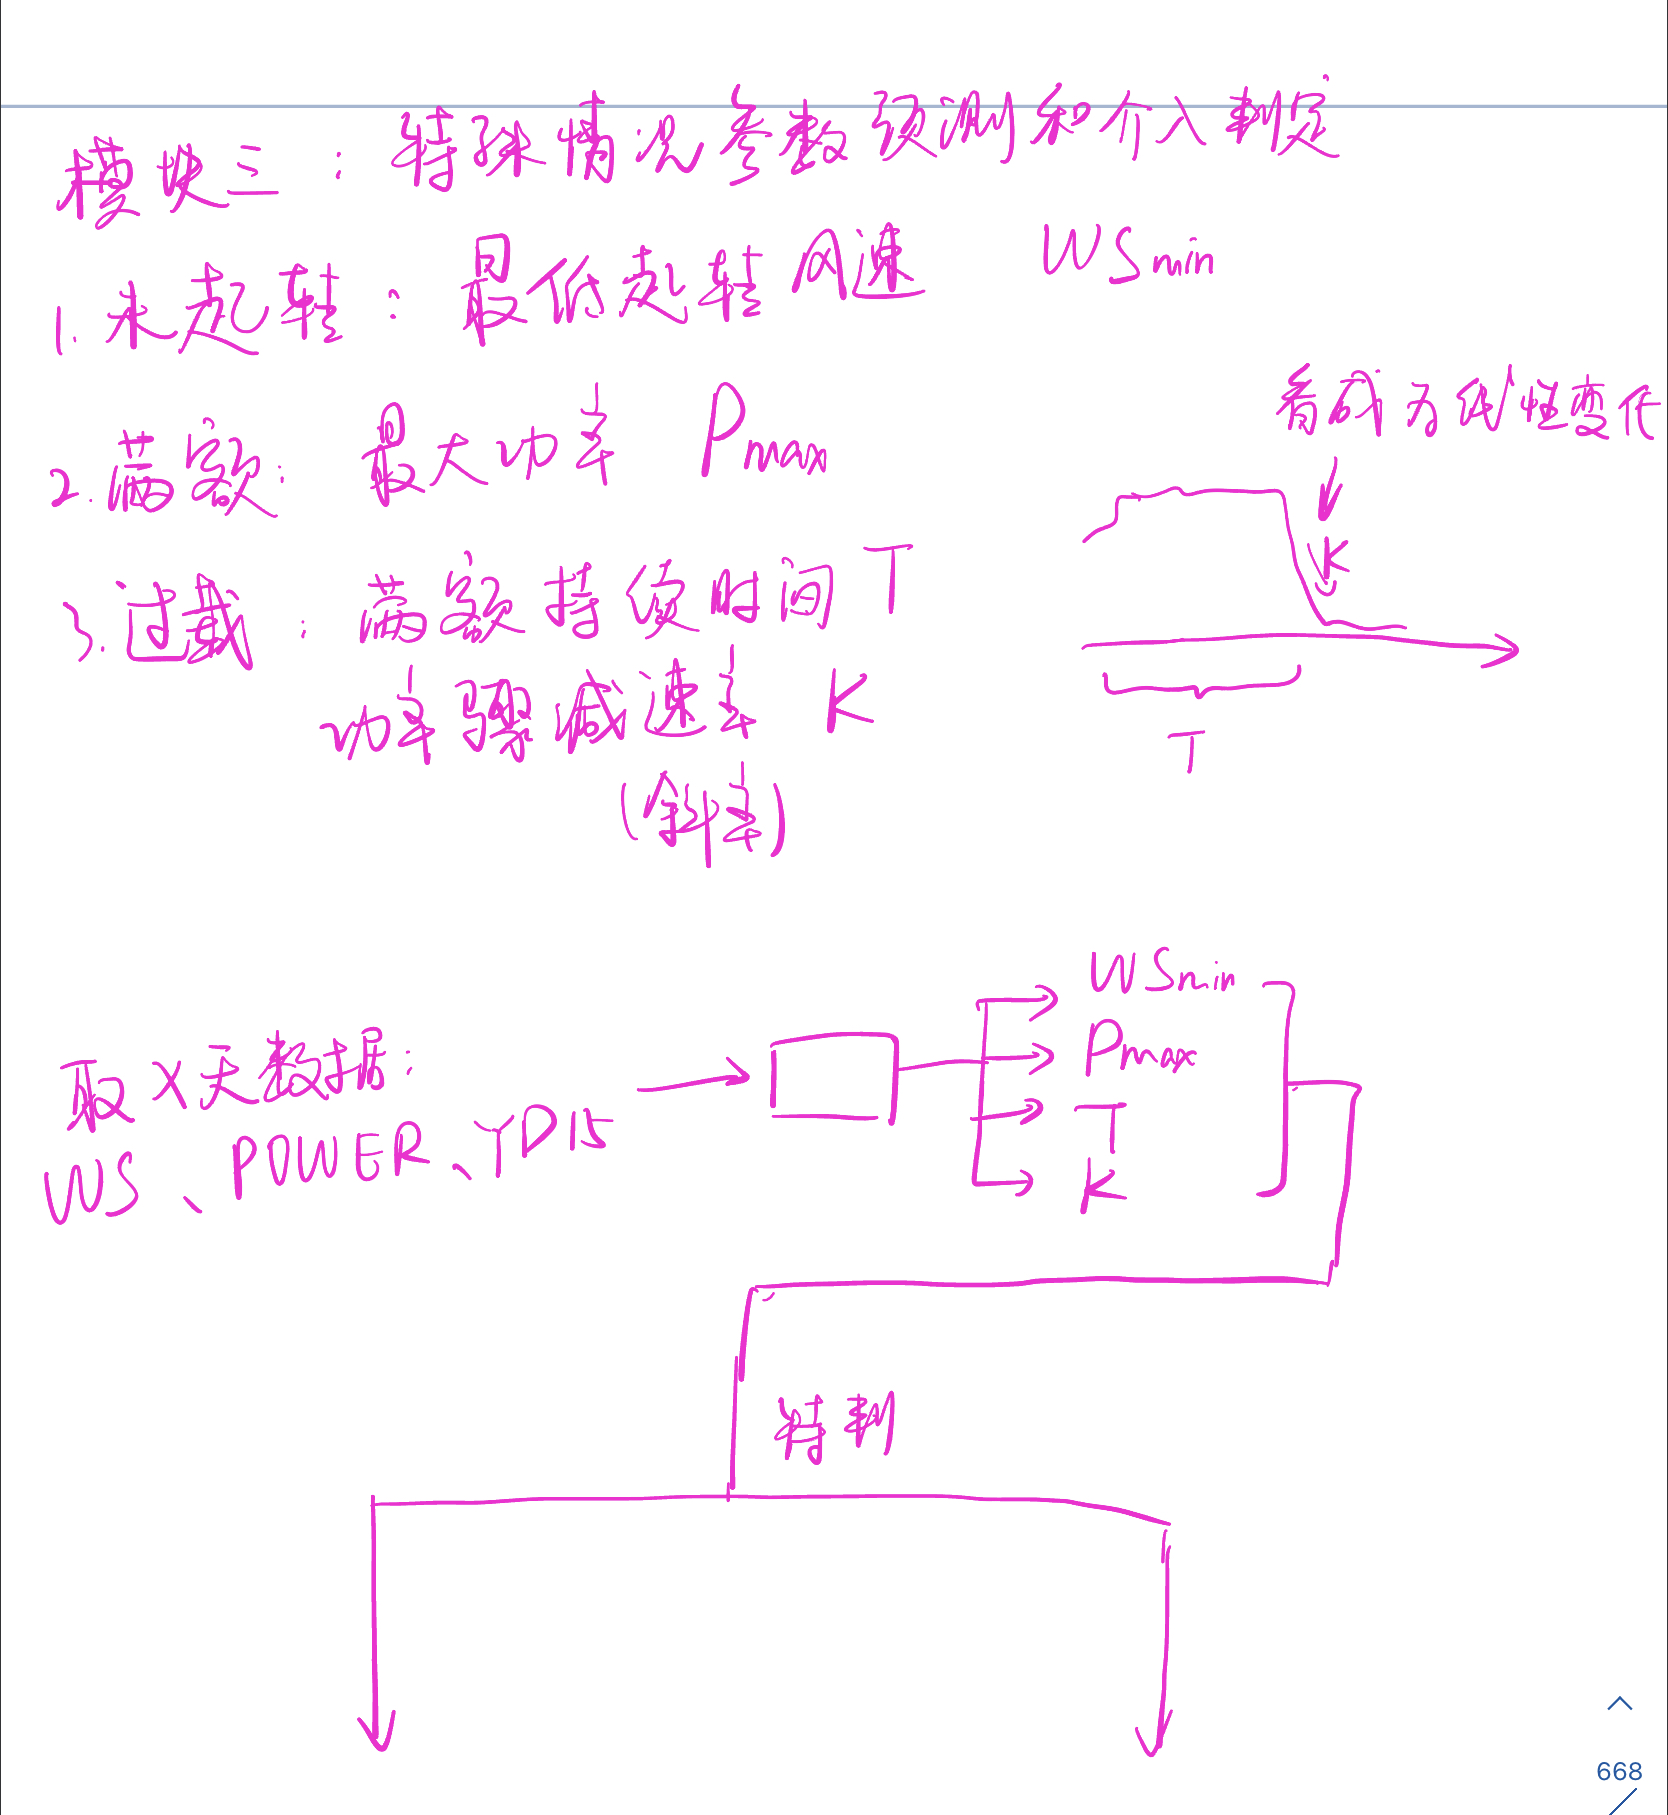 模块三：特殊情况参数预测和介入判定
1. 未起转：最低起转风速 WSmin
2. 满额：最大功率 Pmax
看成为线性变化
K
3. 过载：满额持续时间 T
功率骤减速率 K
(斜率)
T
取X天数据：
WS、POWER、YD15
WSmin
Pmax
T
K
特判
668